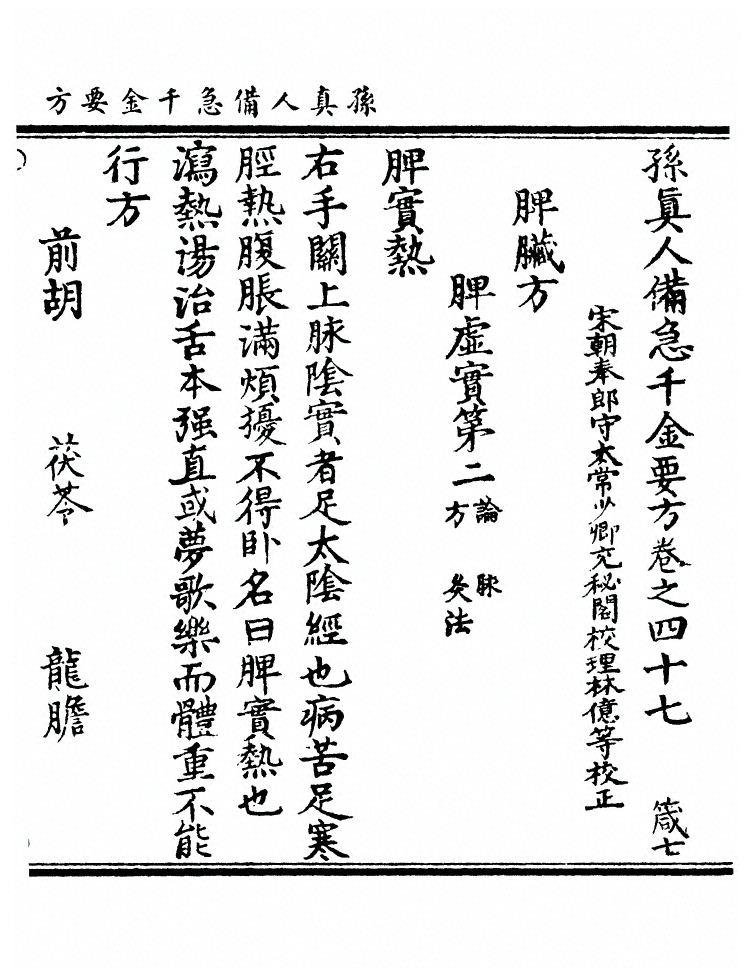 孫真人備急千金要方
孫眞人備急千金要方卷之四十七 箴七
宋朝奉郎守太常少卿充秘閣校理林億等校正
脾臟方
脾虛實第二 論 脉 方 灸法
脾實熱
右手關上脉陰實者足太陰經也病苦足寒
脛熱腹脹滿煩擾不得卧名曰脾實熱也
瀉熱湯治舌本强直或夢歌樂而體重不能
行方
前胡 茯苓 龍膽